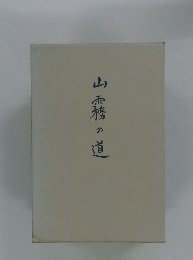 山霧の道